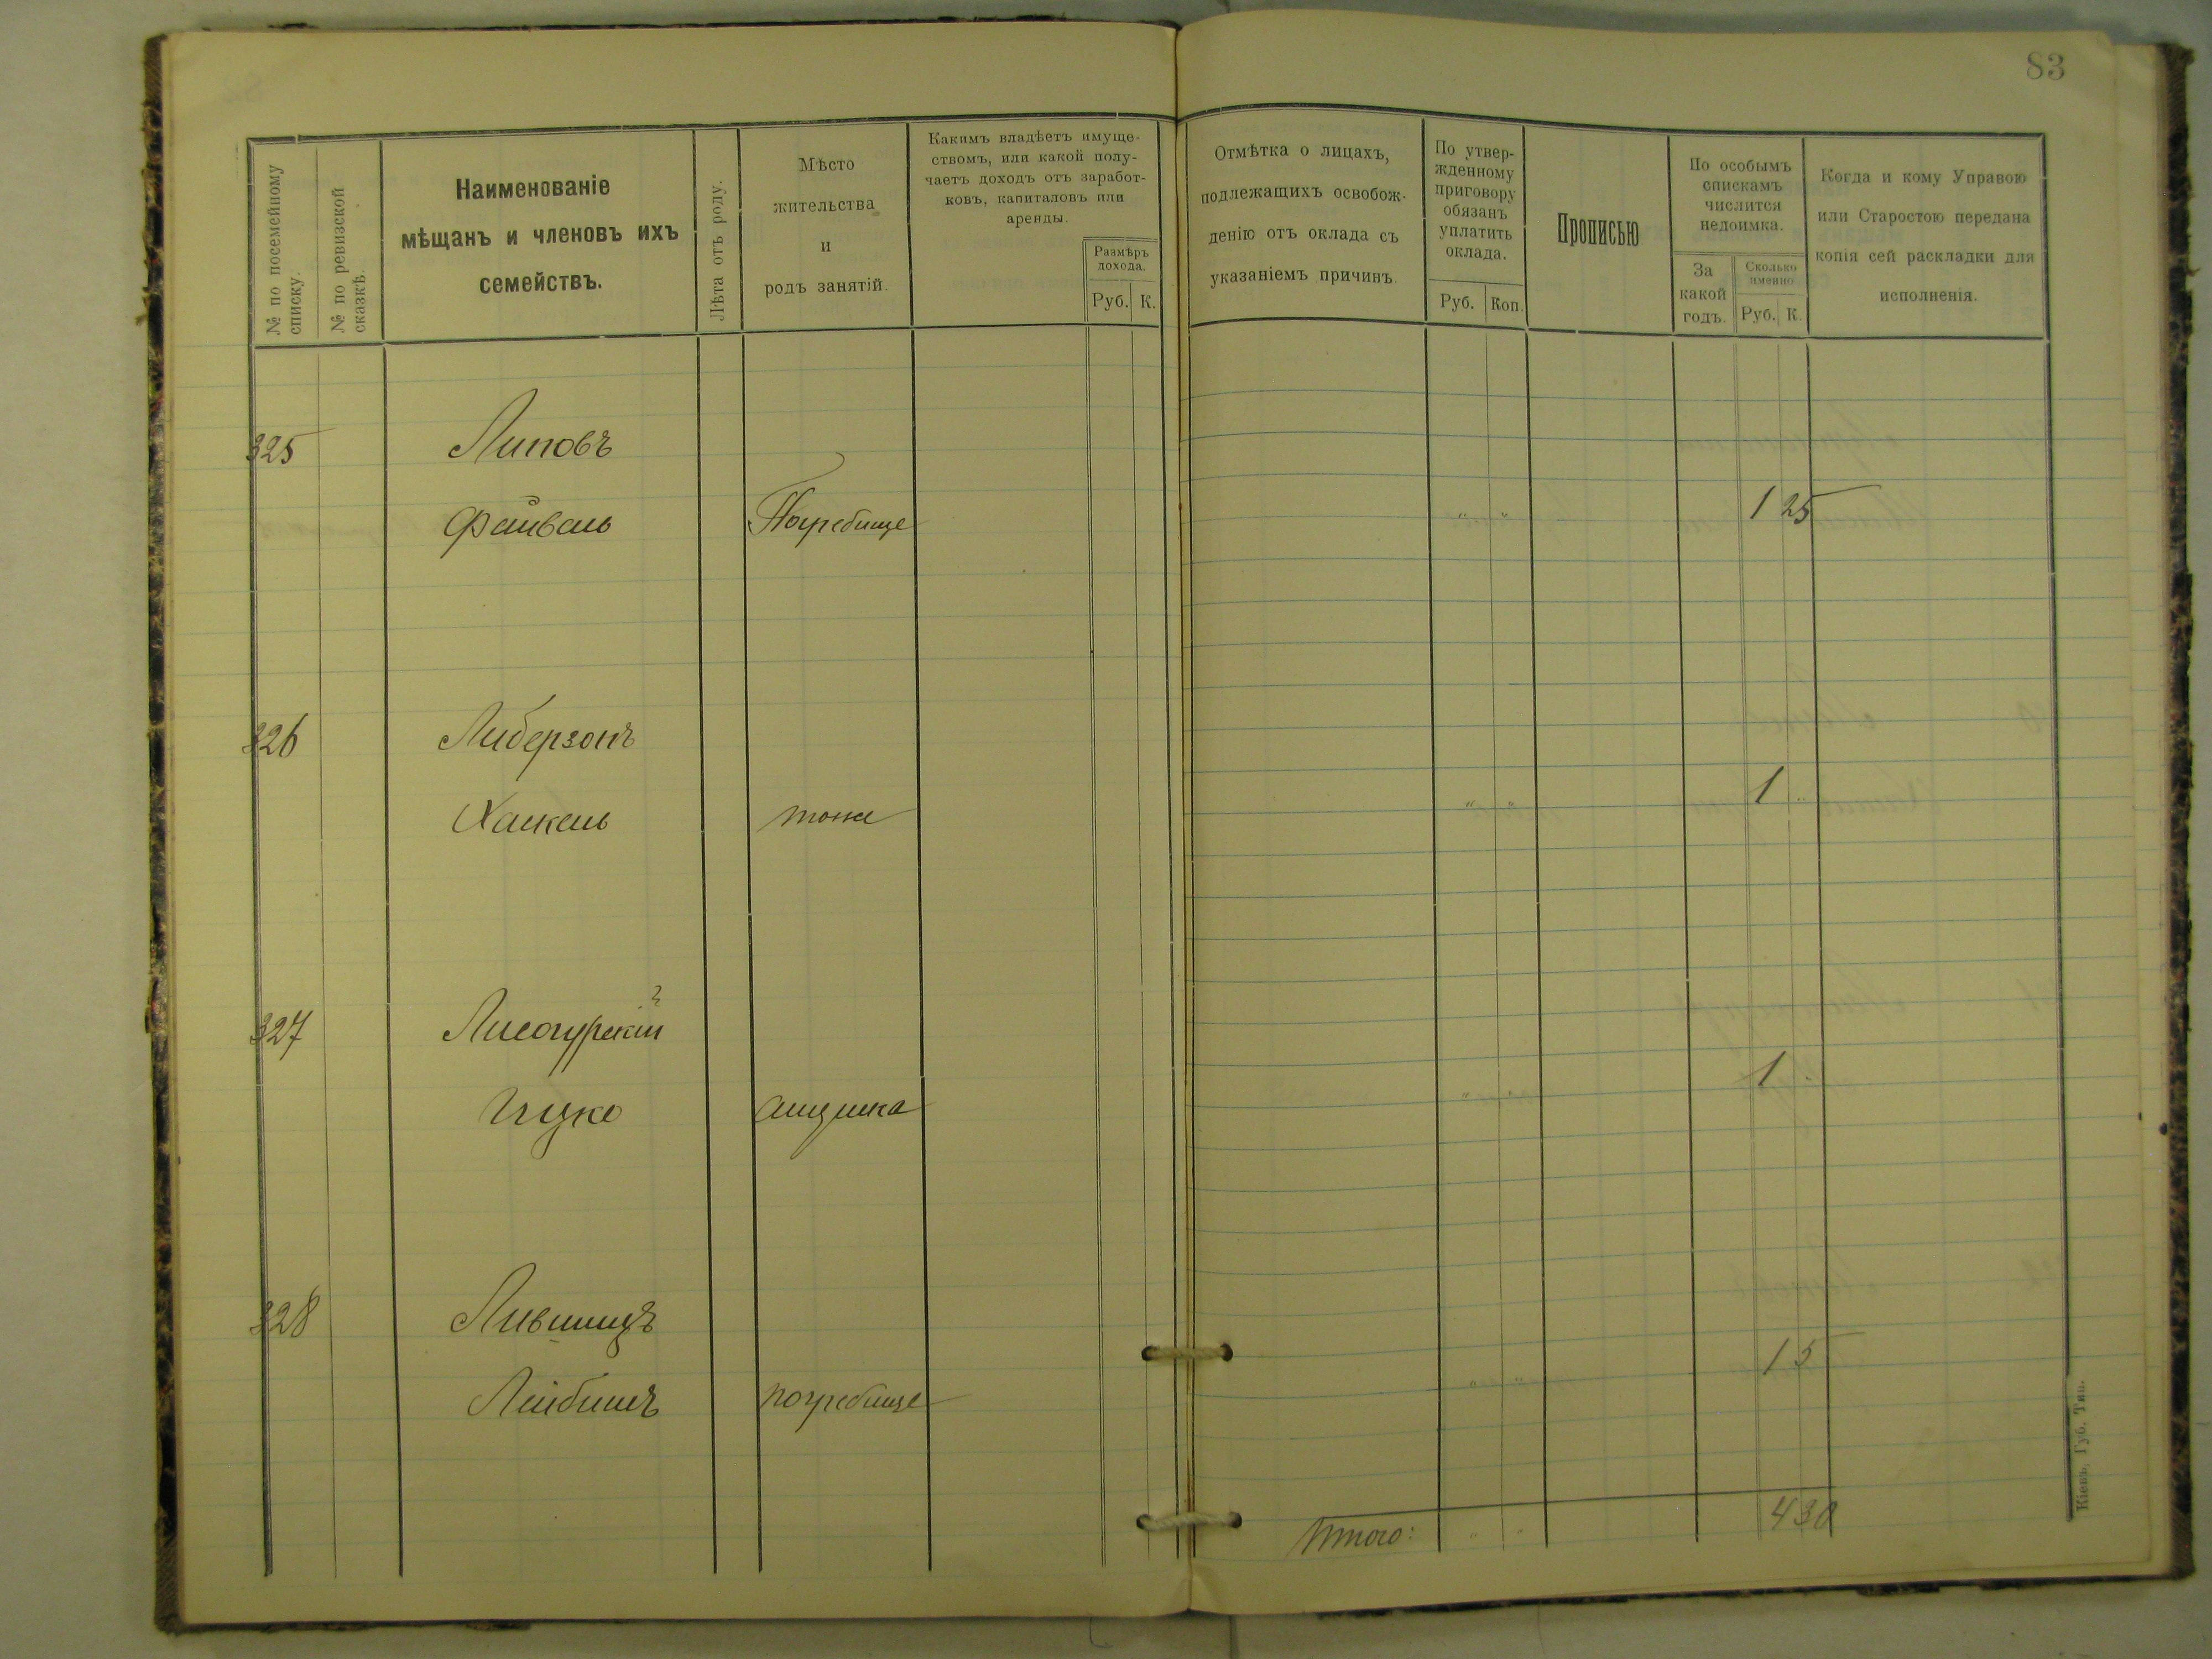 83
№ по посемейному списку.
№ по ревизской сказкѣ.
Наименованіе
мѣщанъ и членовъ ихъ
семействъ.
Лѣта отъ роду.
Мѣсто
жительства
и
родъ занятій.
Какимъ владѣетъ имуще-
ствомъ, или какой полу-
чаетъ доходъ отъ заработ-
ковъ, капиталовъ или
аренды.
Размѣръ
дохода.
Руб. К.
Отмѣтка о лицахъ,
подлежащихъ освобож-
денію отъ оклада съ
указаніемъ причинъ.
По утвер-
жденному
приговору
обязанъ
уплатить
оклада.
Руб. Коп.
Прописью
По особымъ
спискамъ
числится
недоимка.
За
какой
годъ.
Сколько
именно
Руб. К.
Когда и кому Управою
или Старостою передана
копія сей раскладки для
исполненія.
325 Липовъ
Файвель Погребище " " 1 25
326 Либерзонъ
Хаскель тоже " " 1 "
327 Лисогурскій
Ицко " " 1
328 Лившицъ
Лейбишъ погребище " " 1 5
Итого: " " 4 30
Кіевъ, Губ. Тип.